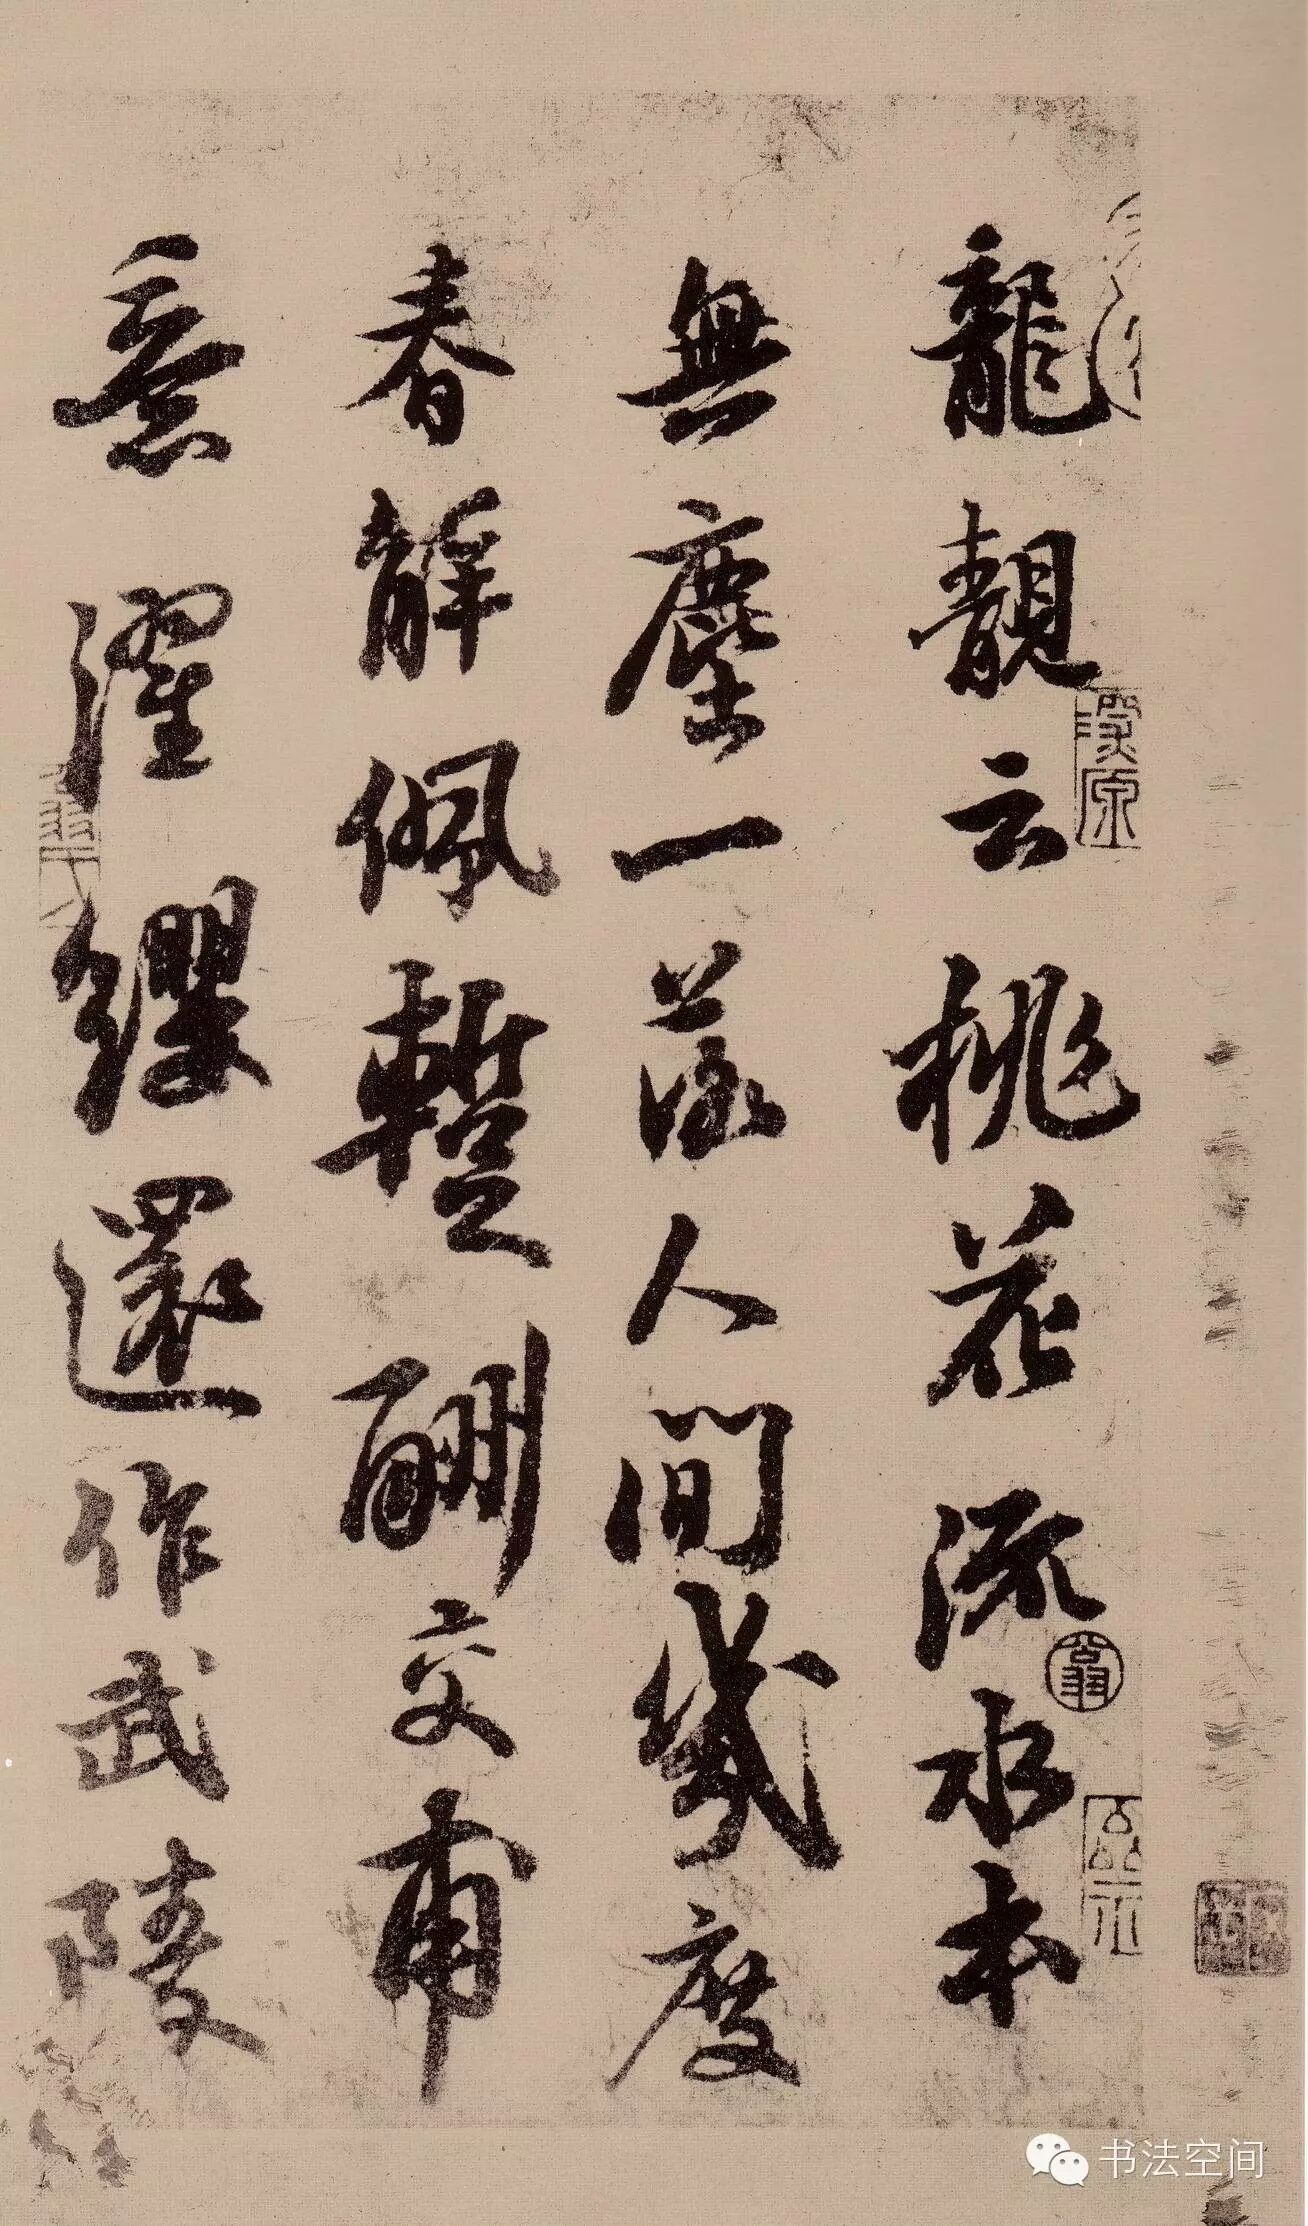 龍靚云桃花流水本
無塵一落人間幾度
春解佩暫酬交甫
意濯纓還作武陵
書法空间